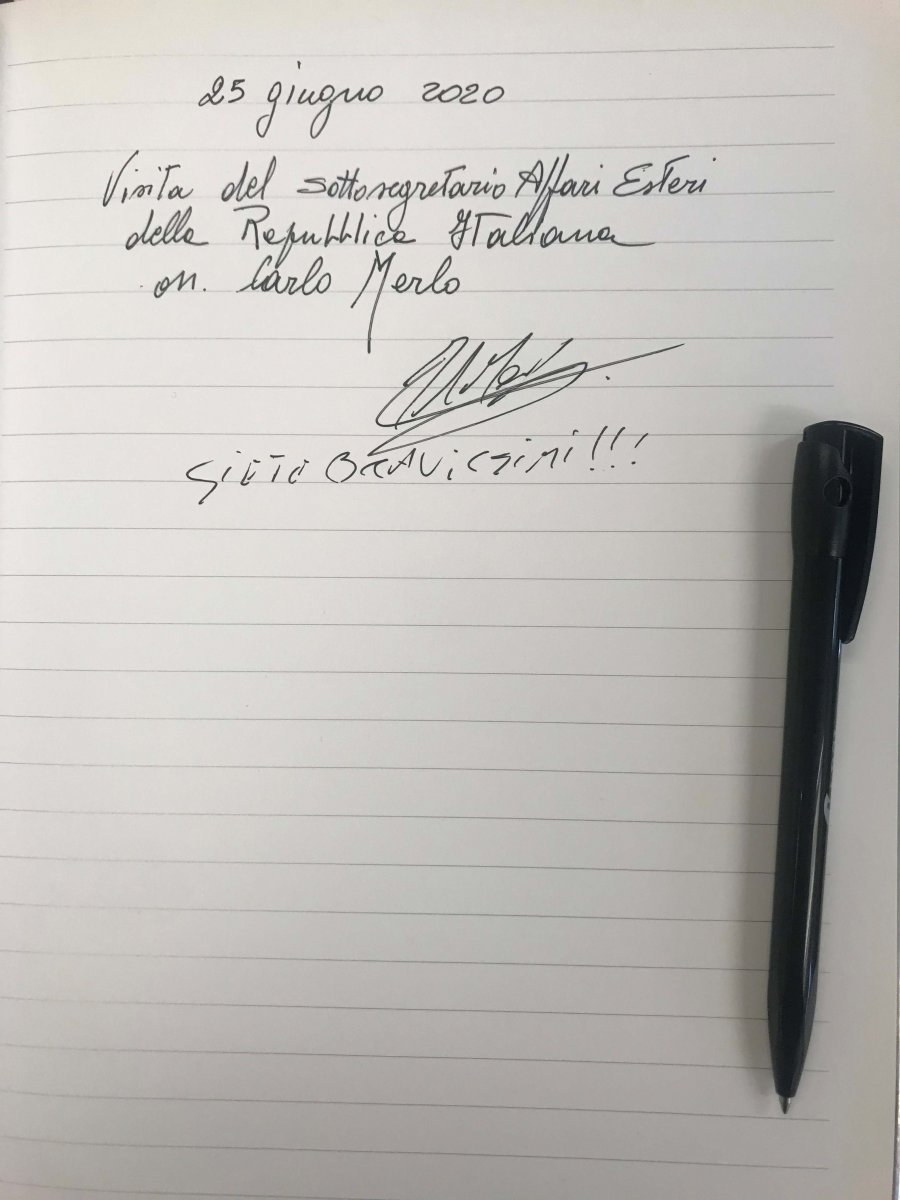 25 giugno 2020
Visita del sottosegretario Affari Esteri
della Repubblica Italiana
on. Carlo Merlo
SIETE BRAVISSIMI!!!